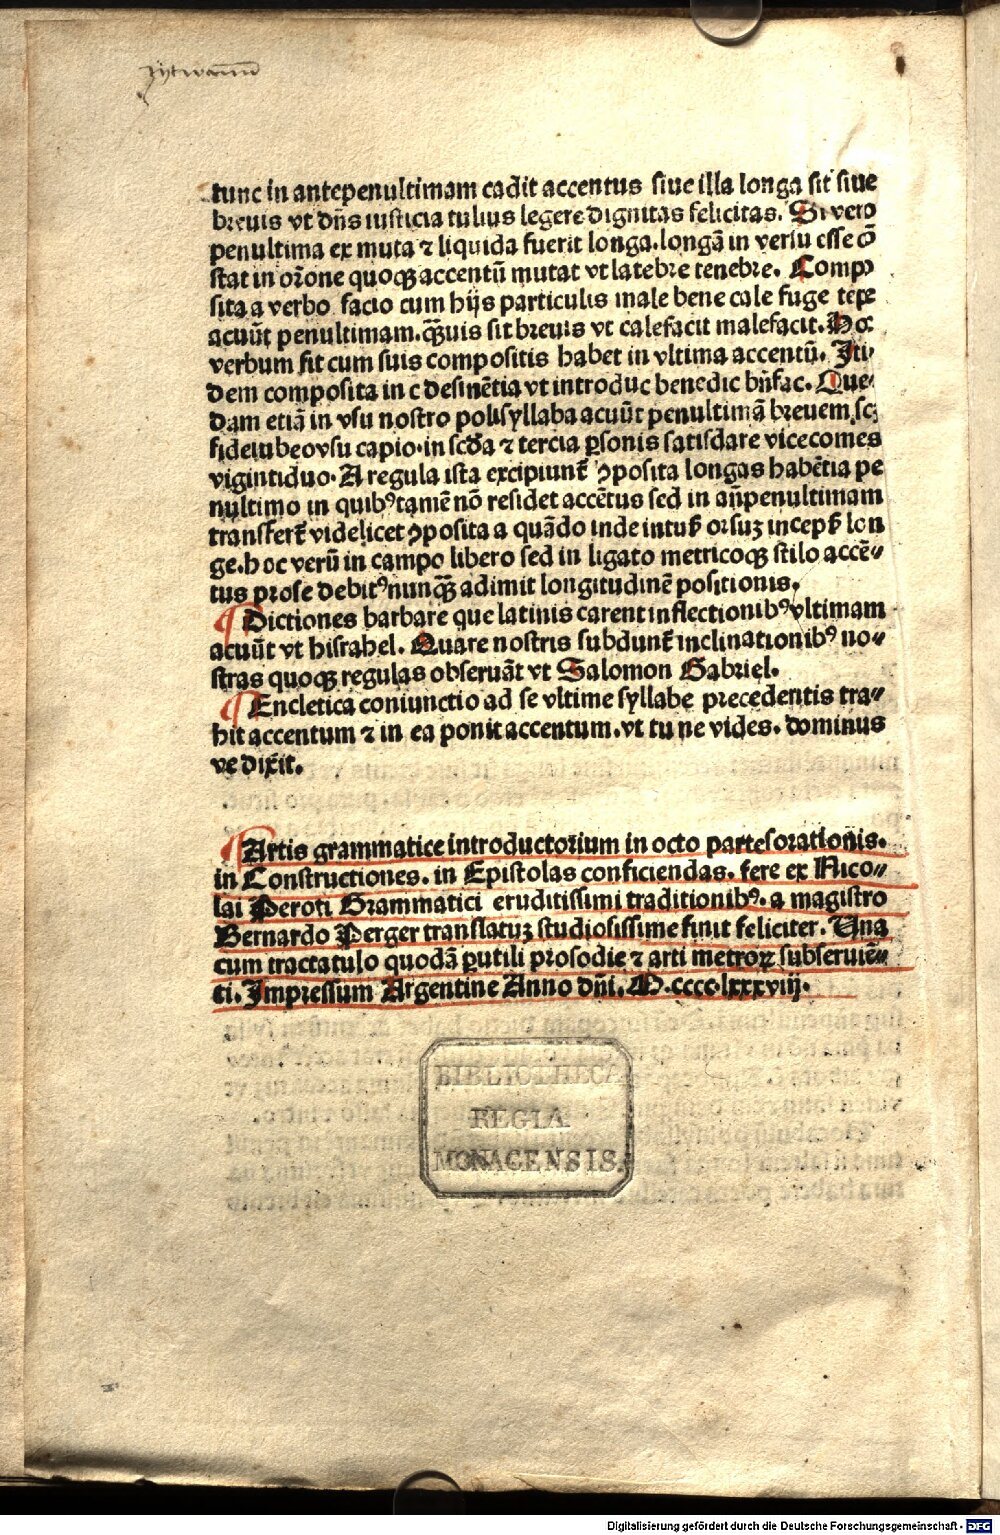 tunc in antepenultimam cadit accentus siue illa longa sit siue
breuis vt dn̄s iusticia tulius legere dignitas felicitas. Si vero
penultima ex muta ⁊ liquida fuerit longa. longā in versu esse cō
stat in or̄one quoqꝫ accentū mutat vt latebre tenebre. Compo
sita a verbo facio cum hijs particulis male bene cale fuge tepe
acuūt penultimam. qꝫuis sit breuis vt calefacit malefacit. Hoc
verbum fit cum suis compositis habet in vltima accentū. Iti
dem composita in c desinētia vt introduc benedic bn̄fac. Que
dam etiā in vsu nostro polisyllaba acuūt penultimā breuem scꝫ
fideiubeo vsu capio. in scd̄a ⁊ tercia ꝑsonis satisdare vicecomes
vigintiduo. A regula ista excipiunt̄ ꝯposita longas habētia pe
nultimo in quibꝰ tamē nō residet accētus sed in an̄penultimam
transfert̄ videlicet ꝯposita a quādo inde intus̄ orsuꝫ incep̄ lon
ge. hoc verū in campo libero sed in ligato metricoqꝫ stilo accē⸗
tus prose debitꝰ nunqꝫ adimit longitudinē positionis.
¶ Dictiones barbare que latinis carent inflectionibꝰ vltimam
acuūt vt hisrahel. Quare nostris subdunt̄ inclinationibꝰ no⸗
stras quoqꝫ regulas obseruāt vt Salomon Gabriel.
¶ Encletica coniunctio ad se vltime syllabe precedentis tra⸗
hit accentum ⁊ in ea ponit accentum. vt tu ne vides. dominus
ve dixit.
¶ Artis grammatice introductorium in octo partes orationis.
in Constructiones. in Epistolas conficiendas. fere ex Nico⸗
lai Peroti Grammatici eruditissimi traditionibꝰ. a magistro
Bernardo Perger translatuꝫ studiosissime finit feliciter. Una
cum tractatulo quodā ꝑutili prosodie ⁊ arti metroꝝ subseruiē⸗
ti. Impressum Argentine Anno dn̄i. M. cccc. lxxxviij.
BIBLIOTHECA
REGIA
MONACENSIS.
Digitalisierung gefördert durch die Deutsche Forschungsgemeinschaft - DFG